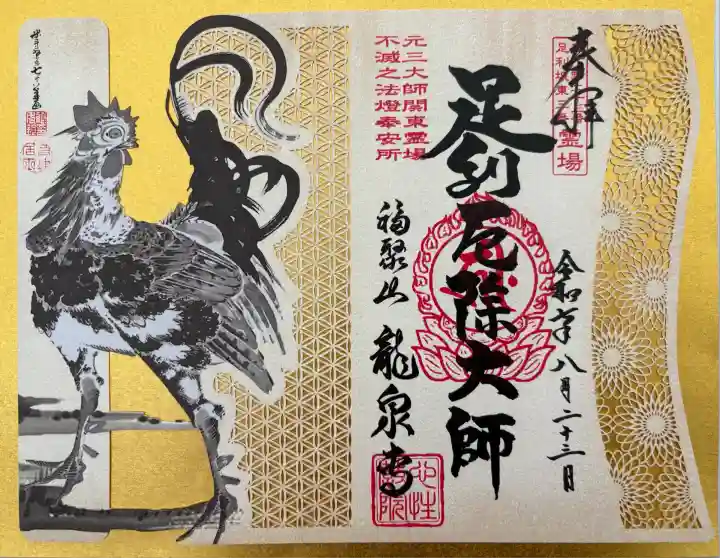 奉拝
足利坂東
霊場
足利厄除大師
元三大師関東霊場
不滅之法燈奉安所
福聚山 龍泉寺
令和六年八月二十三日